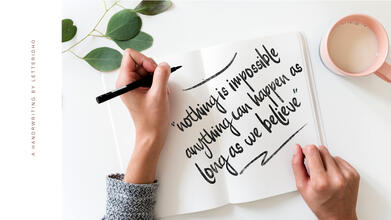 A HANDWRITING BY LETTERIDHO
"nothing is impossible
anything can happen as
long as we believe"